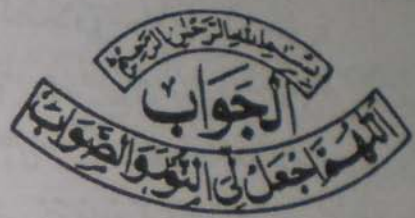 بسم الله الرحمن الرحيم
الجَوَاب
اَللّٰهُمَّ اجْعَلْ لِي النُّوْرَ وَالصَّوَابَ